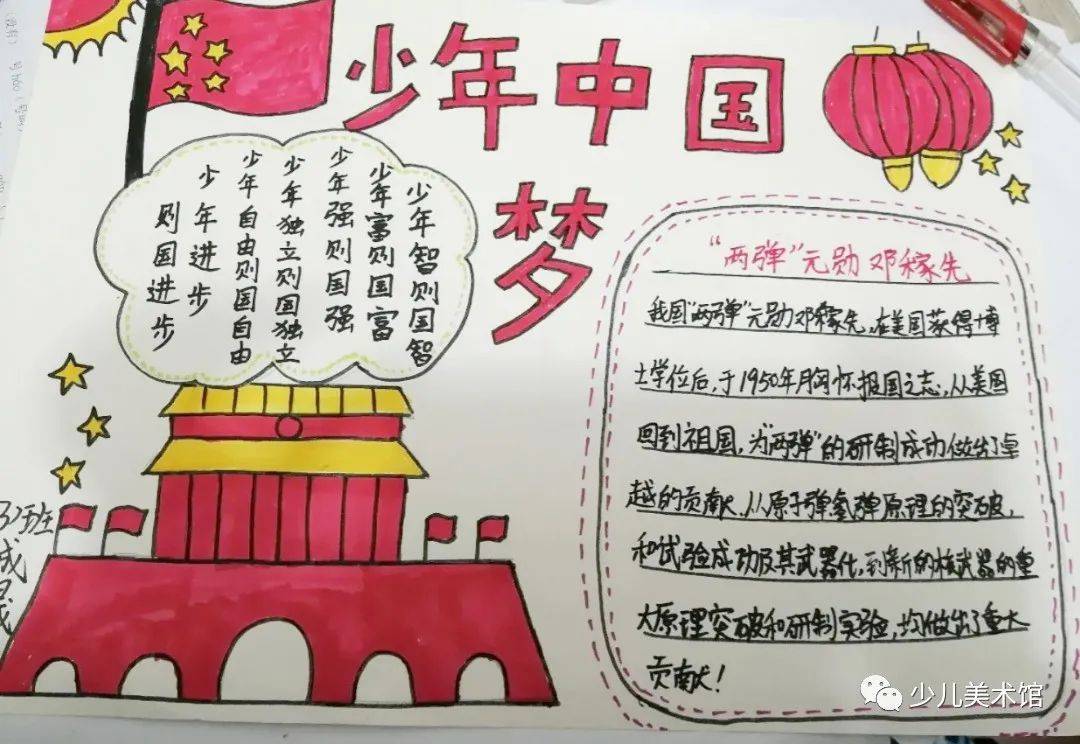 少年中国
梦
少年智则国智
少年富则国富
少年强则国强
少年独立则国独立
少年自由则国自由
少年进步
则国进步
“两弹”元勋邓稼先
我国“两弹”元勋邓稼先,在美国获得博
士学位后,于1950年胸怀报国之志,从美国
回到祖国,为“两弹”的研制成功做出了卓
越的贡献,从原子弹氢弹原理的突破,
和试验成功及其武器化,到新的核武器的重
大原理突破和研制实验,均做出了重大
贡献!
班
成
少儿美术馆